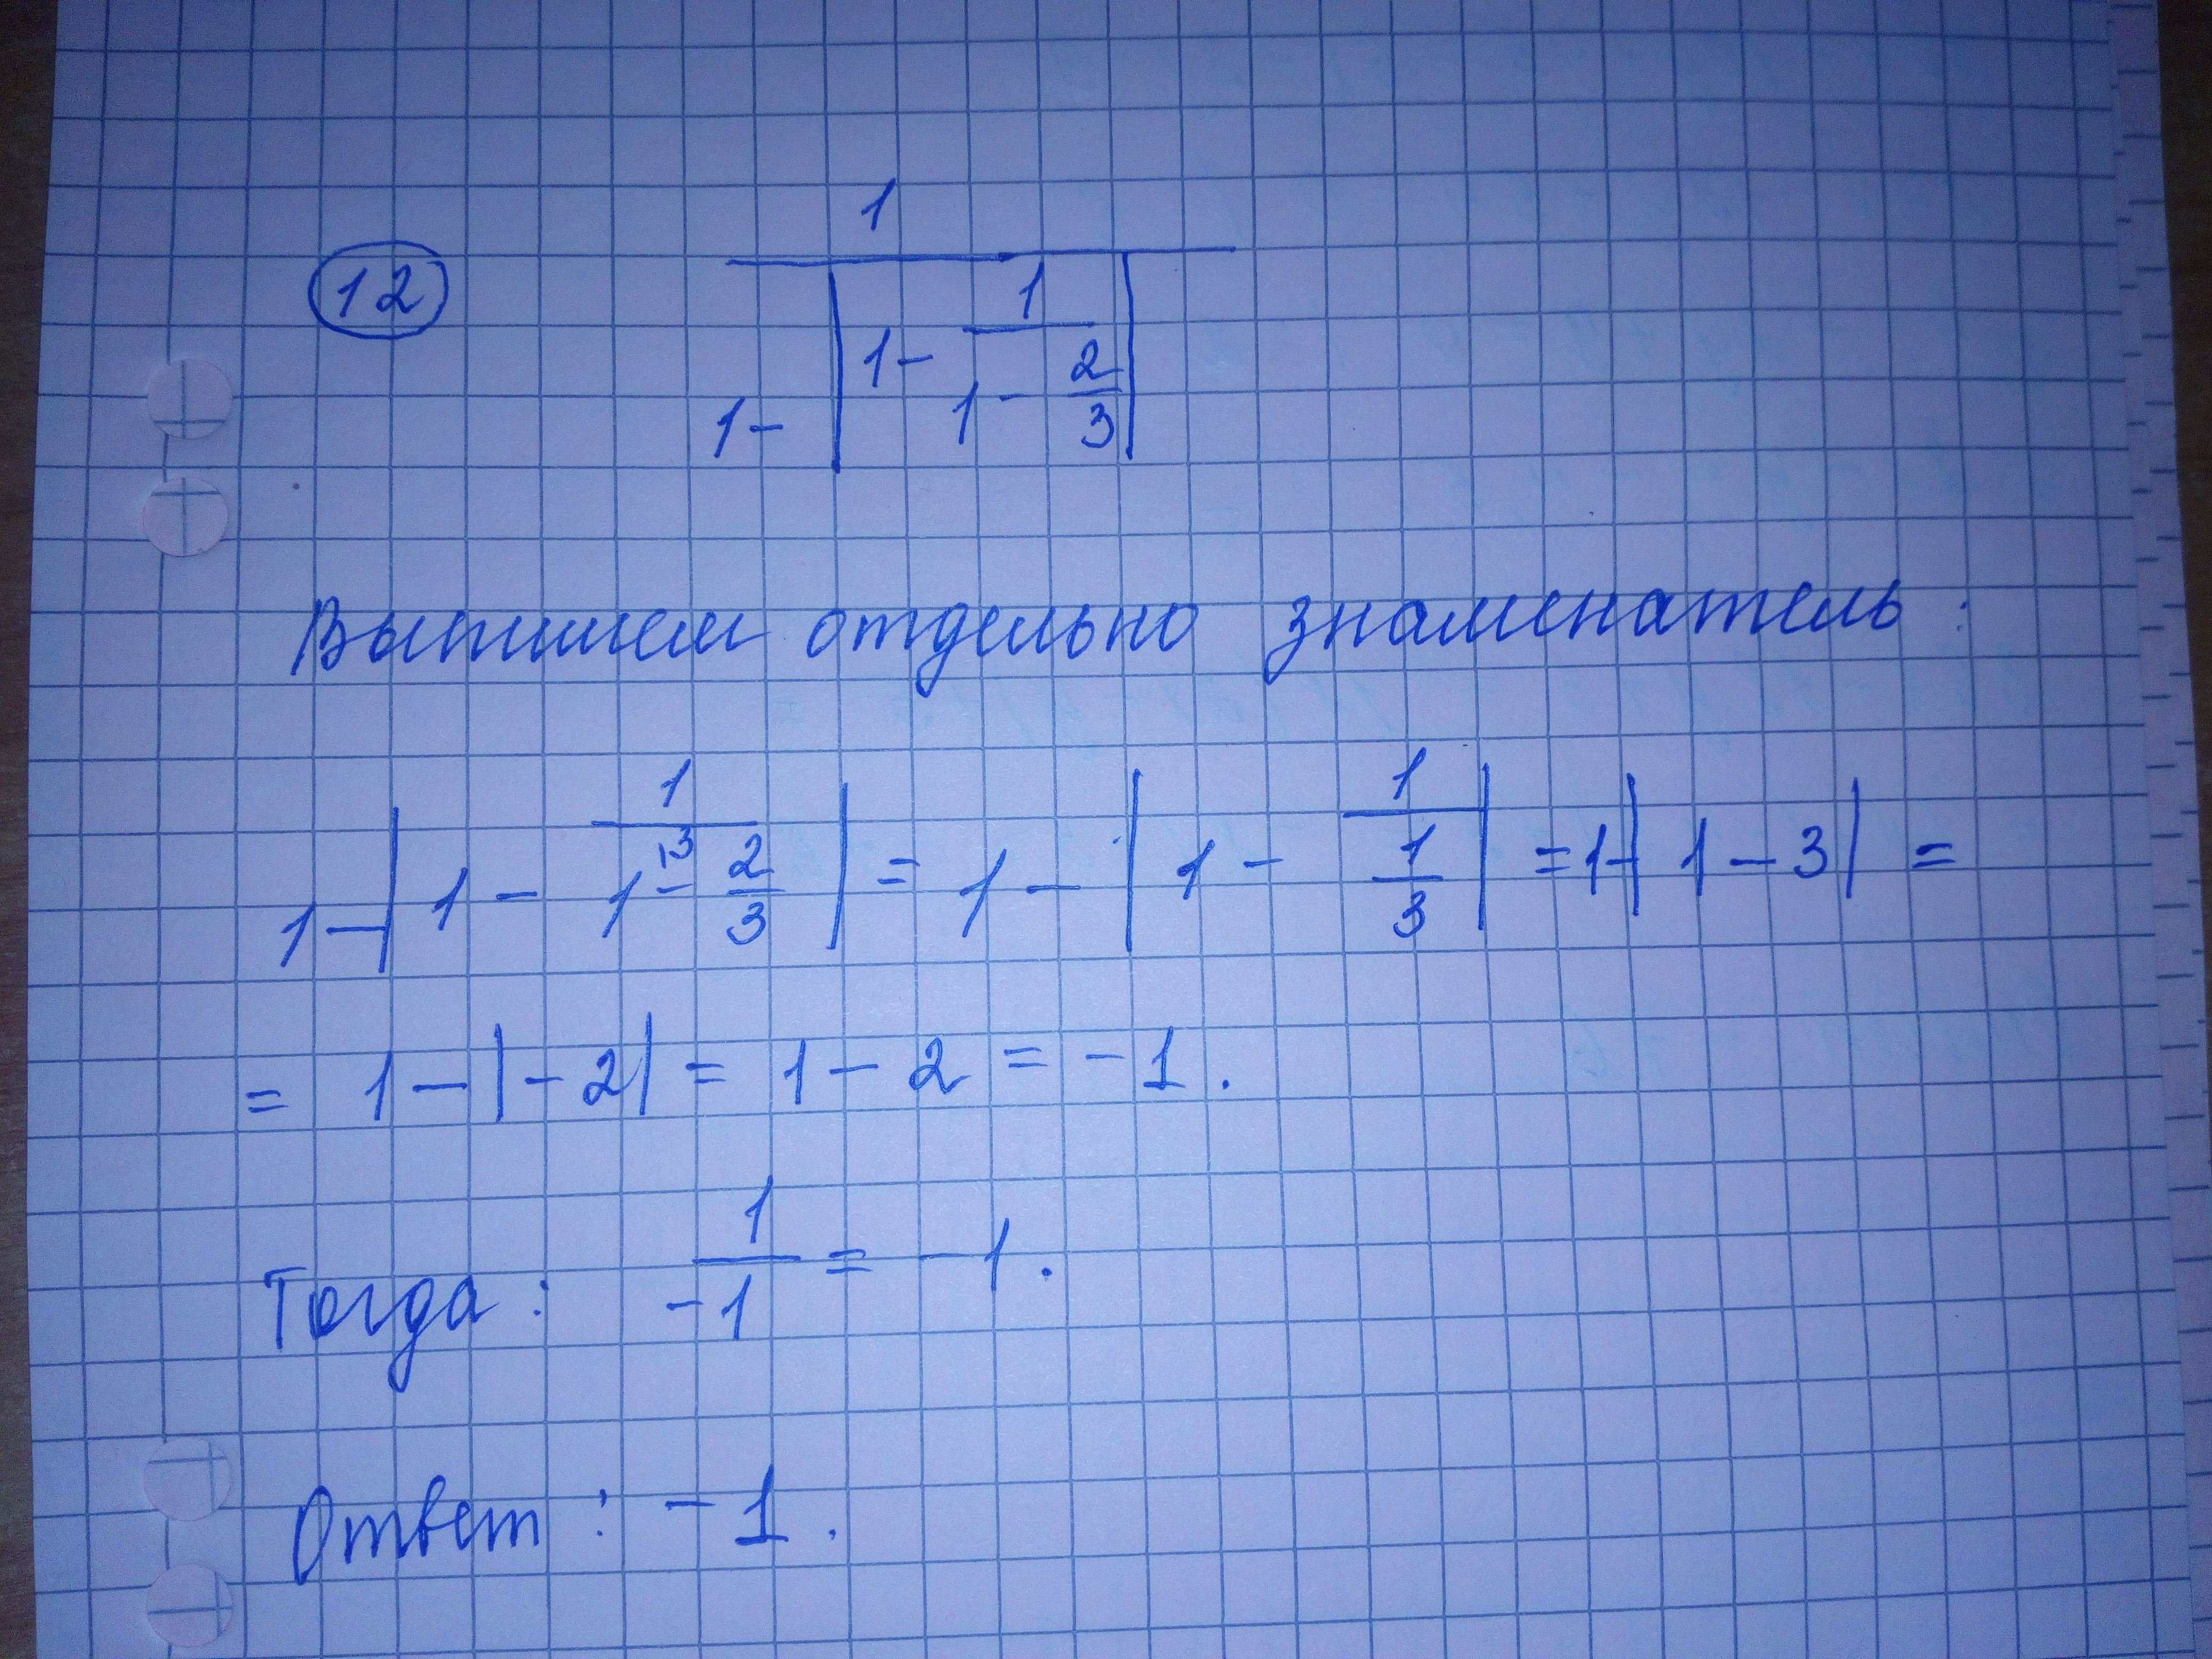 12
1
1 - | 1 - 1/(1 - 2/3) |
Выпишем отдельно знаменатель:
1 - | 1 - 1/(1^{\3} - 2/3) | = 1 - | 1 - 1/(1/3) | = 1 - | 1 - 3 | =
= 1 - | - 2 | = 1 - 2 = - 1.
Тогда: 1/(-1) = - 1.
Ответ: - 1.